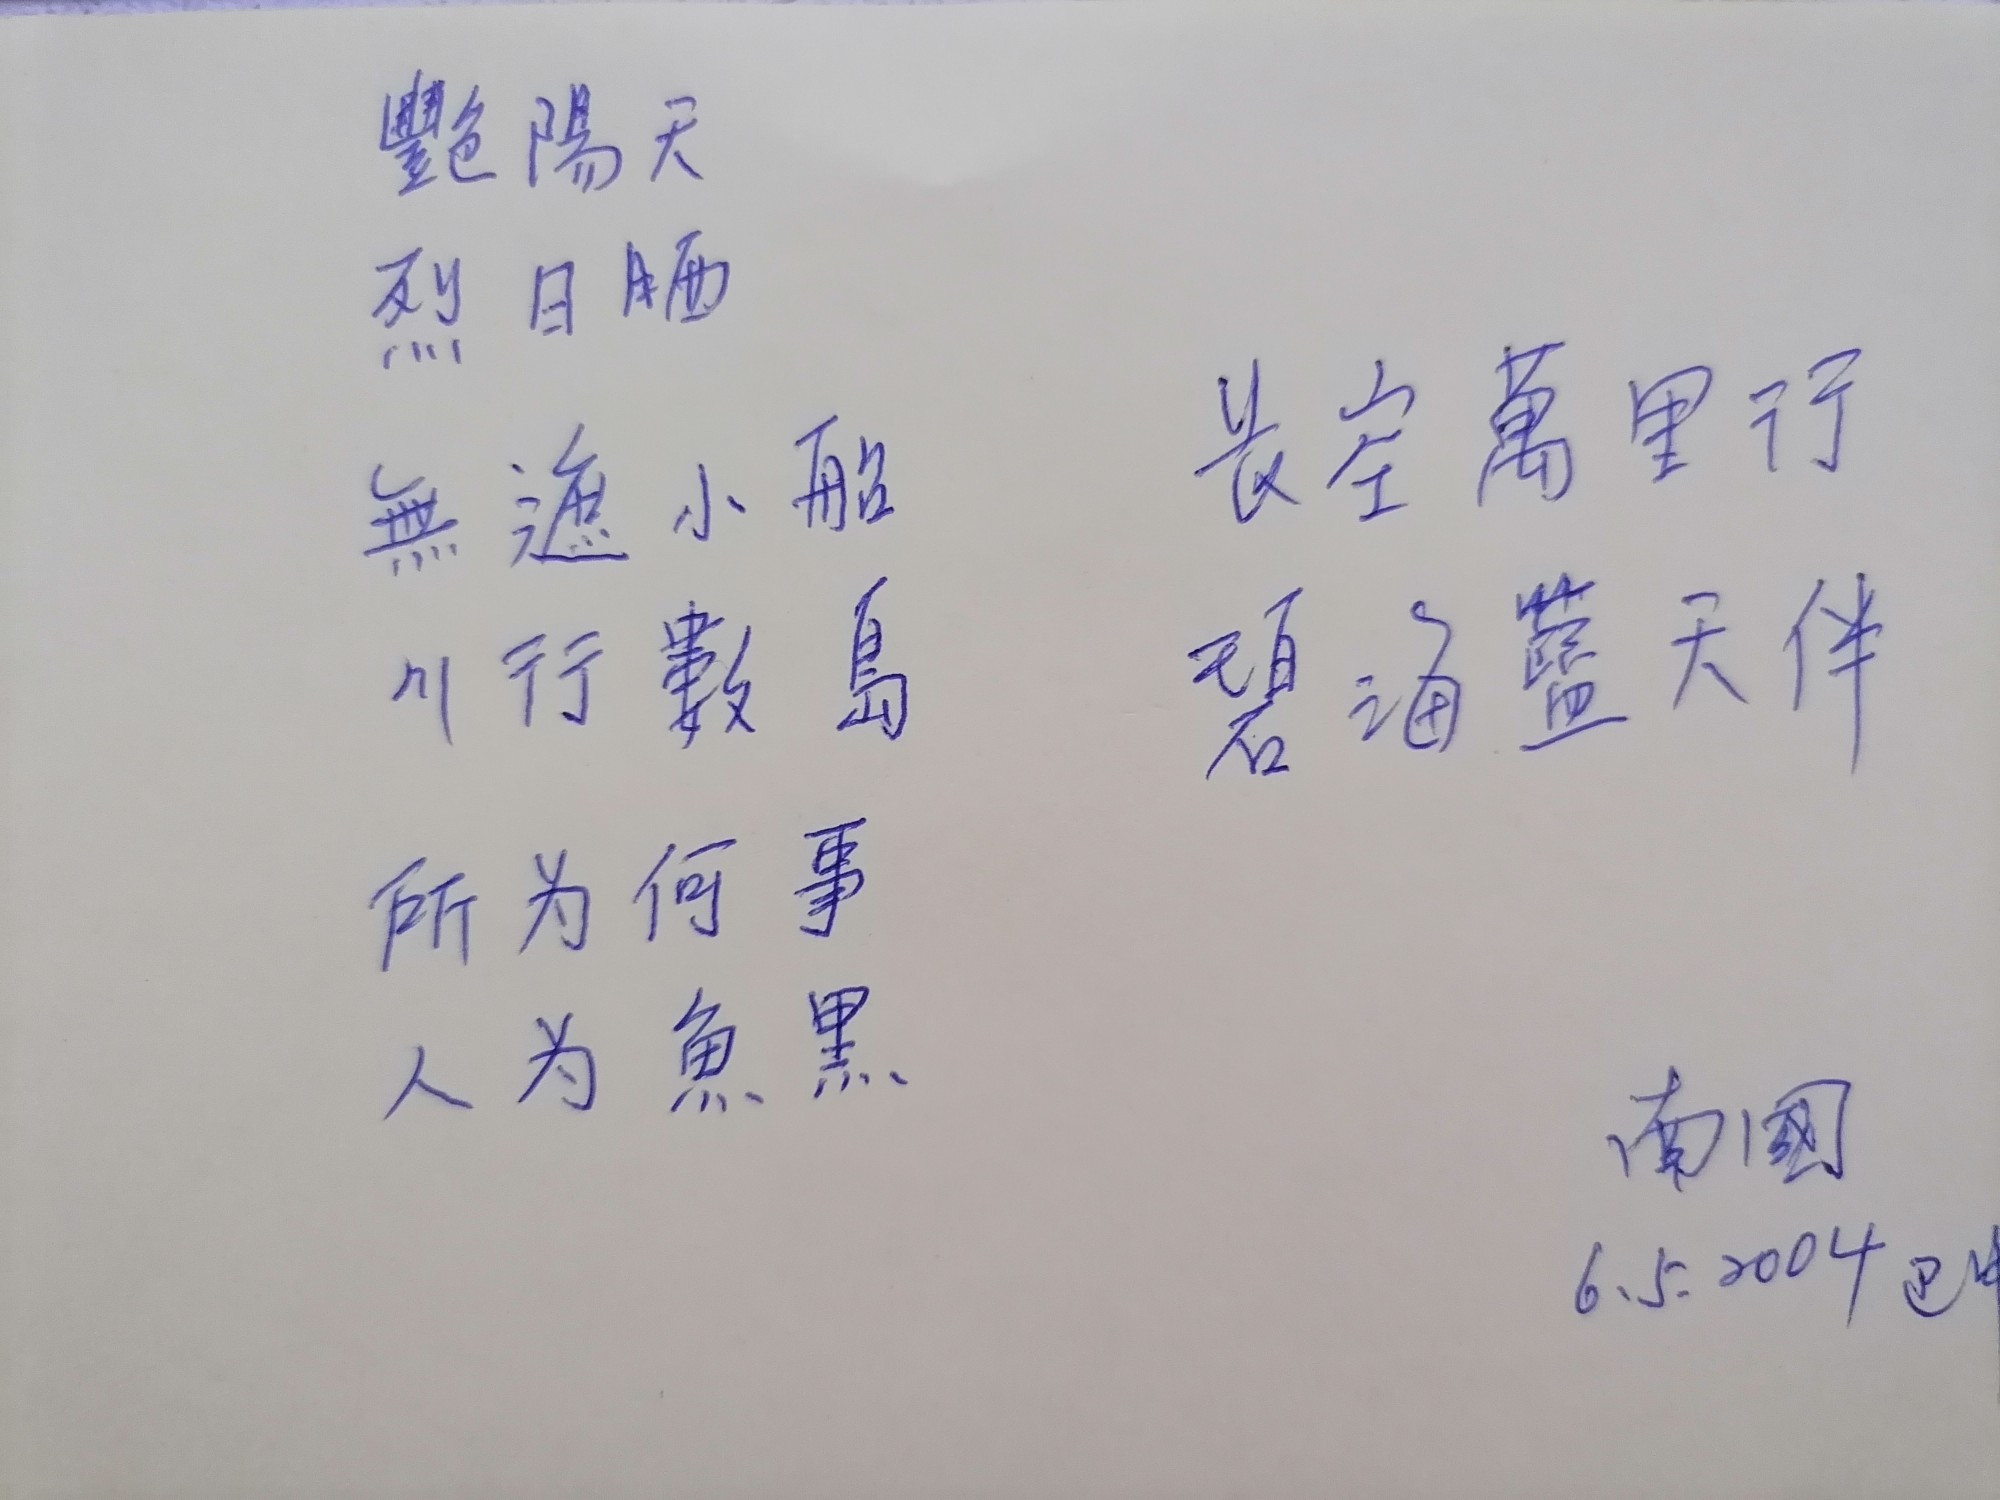 豔陽天
烈日晒
無遮小船
川行數島
所为何事
人为魚黑
長空萬里行
碧海藍天伴
南國
6.5.2004